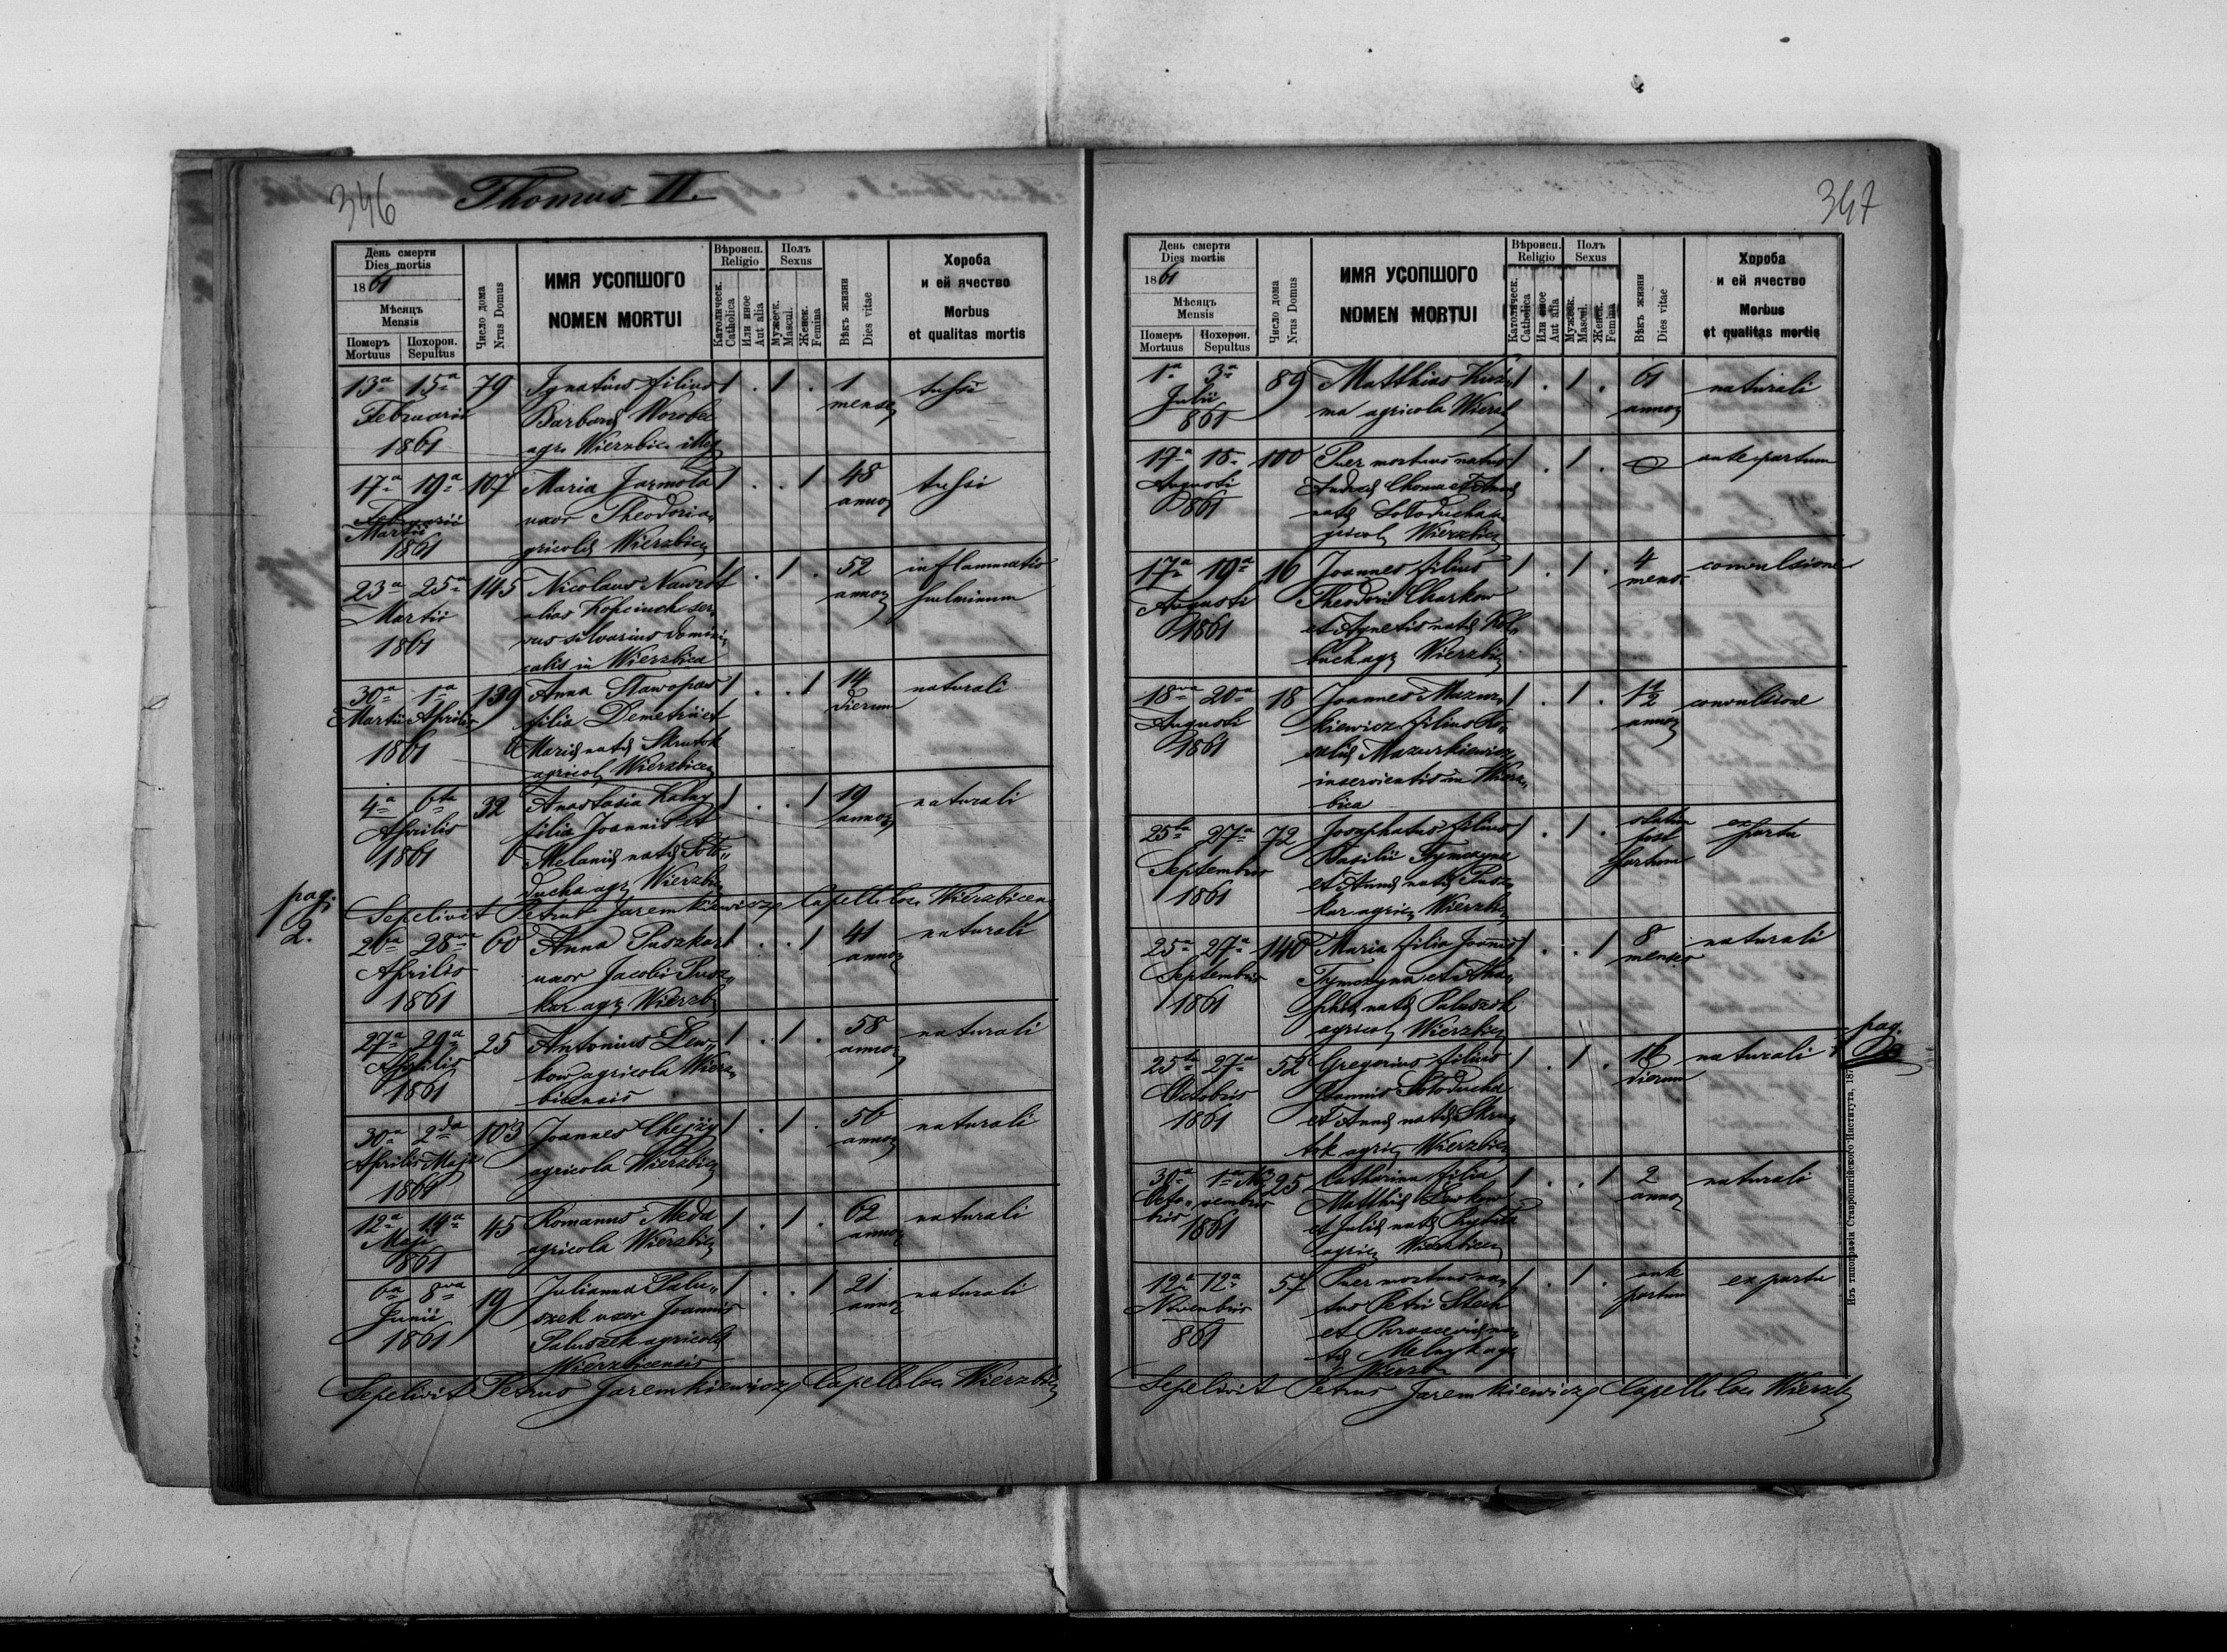 346
Thomus II.
День смерти
Dies mortis
1861
Мѣсяцъ
Mensis
Померъ Похорон.
Mortuus Sepultus
Число дома
Nrus Domus
ИМЯ УСОПШОГО
NOMEN MORTUI
Вѣронсп.
Religio
Католическ.
Catholica
Или иное
Aut alia
Полъ
Sexus
Мужеск.
Mascul.
Женск.
Femina
Вѣкъ жизни
Dies vitae
Хороба
и ей ячество
Morbus
et qualitas mortis
13a 15a 79 Ignatius filius 1 . 1 . 1 tussi
Februarii Barbarae Worobec mense
1861 agr. Wierzbic. illeg
17a 19a 107 Maria Jarmola 1 . . 1 48 tussi
Februarii uxor Theodori a- anno
Martii gricolae Wierzbic
1861
23a 25a 145 Nicolaus Nawrot 1 . 1 . 52 inflammatio
Martii alias Kopciuch ser- anno pulminum
1861 vus silvarius domini-
calis in Wierzbica
30a 1a 139 Anna Stawopas 1 . . 1 14 naturali
Martii Aprilis filia Demetrii et dierum
1861 Mariae natae Skrutok
agricol Wierzbic
4a 6ta 32 Anastasia Kalny 1 . . 1 19 naturali
Aprilis filia Joannis et anno
1861 Melaniae natae Soło-
ducha agr Wierzbic
Sepelivit Petrus Jaremkiewicz Capell. loc. Wierzbicen
pag.
2.
26ta 28va 60 Anna Puszkar 1 . . 1 41 naturali
Aprilis uxor Jacobi Pusz- anno
1861 kar agr Wierzb
27a 29a 25 Antonius Lew- 1 . 1 . 58 naturali
Aprilis kow agricola Wierz- anno
1861 bicensis
30a 2da 103 Joannes Chejzy 1 . 1 . 56 naturali
Aprilis Maji agricola Wierzbic anno
1861
12a 14a 45 Romanus Meda 1 . 1 . 62 naturali
Maji agricola Wierzbic anno
1861
6a 8va 19 Julianna Palu- 1 . . 1 21 naturali
Junii szek uxor Joannis anno
1861 Paluszek agricolae
Wierzbicensis
Sepelivit Petrus Jaremkiewicz Capell. loc. Wierzbic
347
День смерти
Dies mortis
1861
Мѣсяцъ
Mensis
Померъ Похорон.
Mortuus Sepultus
Число дома
Nrus Domus
ИМЯ УСОПШОГО
NOMEN MORTUI
Вѣронсп.
Religio
Католическ.
Catholica
Или иное
Aut alia
Полъ
Sexus
Мужеск.
Mascul.
Женск.
Femina
Вѣкъ жизни
Dies vitae
Хороба
и ей ячество
Morbus
et qualitas mortis
1a 3a 89 Matthias Kuz- 1 . 1 . 61 naturali
Julii ma agricola Wierzb anno
861
17a 18a 100 Puer mortuus natus 1 . 1 . 0 ante partum
Augusti Andreae Choma et Annae
1861 natae Sołoducha a-
gricol Wierzbic
17a 19a 16 Joannes filius 1 . 1 . 4 convulsione
Augusti Theodori Charkow mens
1861 et Agnetis natae Koł-
buch agr Wierzbic
18va 20a 18 Joannes Mazur- 1 . 1 . 1 1/2 convulsione
Augusti kiewicz filius Ro- anno
1861 saliae Mazurkiewicz
inservientis in Wierz-
bica
25ta 27a 72 Josephatus filius 1 . 1 . statim ex
Septembris Basilii Tymczyna post partu
1861 et Annae natae Pusz- partum
kar agric Wierzbic
25a 27a 140 Maria filia Joannis 1 . . 1 8 naturali
Septembris Tymczyna et Aha- menses
1861 phiae natae Paluszek
agricol Wierzbic
25ta 27a 52 Gregorius filius 1 . 1 . naturali
Octobris Joannis Sołoducha dierum
1861 et Annae natae Skru-
tok agric Wierzbic
pag.
30a 1a 25 Catharina filia 1 . . 1 2 naturali
Octo- vembris Matthiae Lewkow anno
bris et Juliae natae Rybiła
1861 agric Wierzbic
12a 12a 57 Puer mortuus na- 1 . 1 . ante ex partu
Novembris tus Petri Stech partum
861 et Parasceviae na-
tae Melnyk agr
Wierzb
Sepelivit Petrus Jaremkiewicz Capell. loc. Wierzb
Изъ типографіи Ставропигійского Института, 187